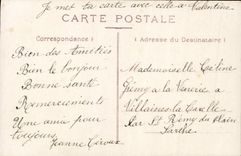 Je met ta carte avec celle à Valentine
CARTE POSTALE
Correspondance
Adresse du Destinataire
Bien des Amitiés
Bien le bonjour
Bonne santé
Remerciements
Une amie pour
toujours
Jeanne
Mademoiselle Céline
à la
Villaines la
par St Rémy du Plain
Sarthe